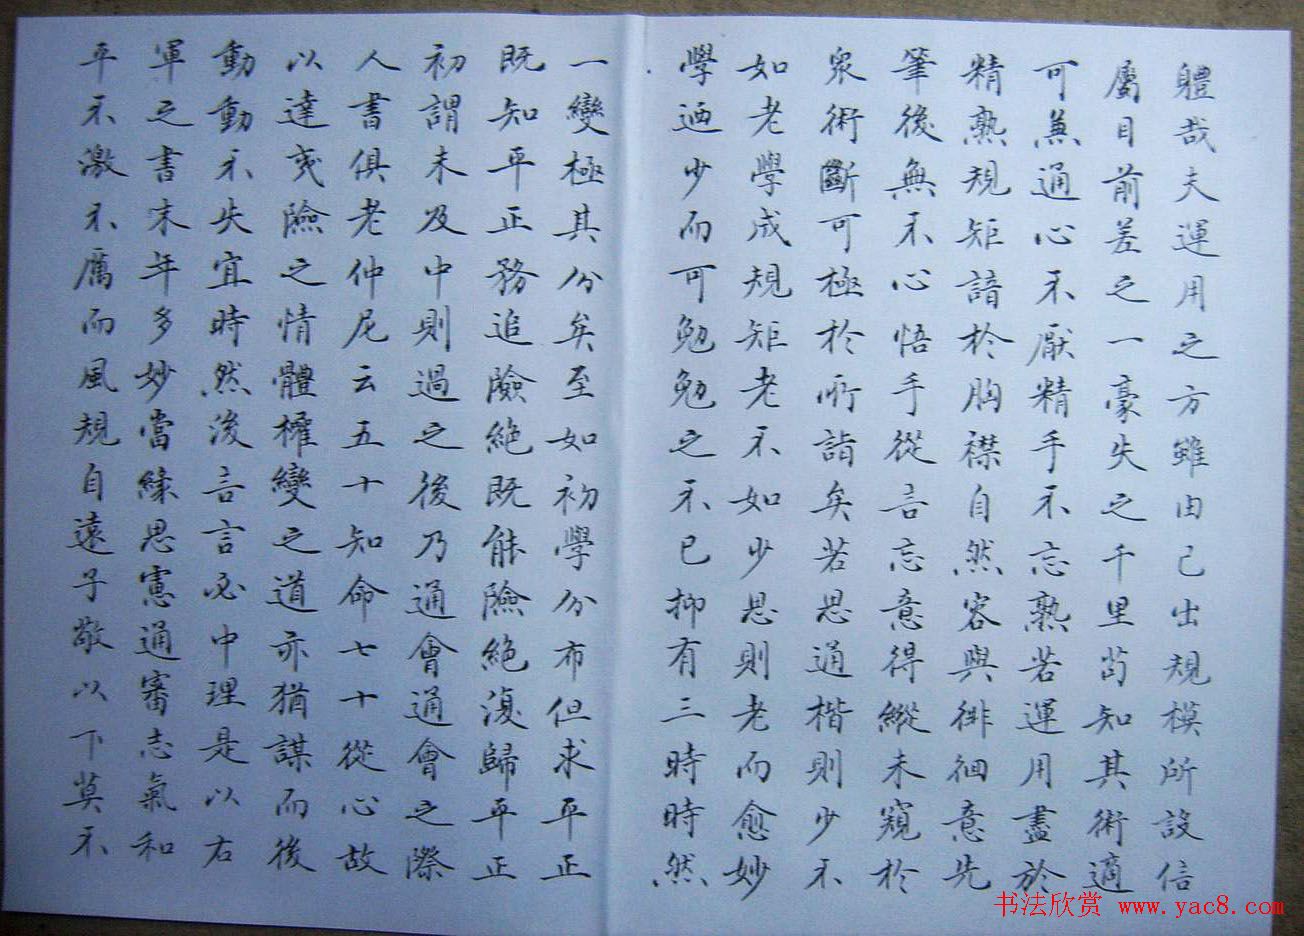 體哉夫運用之方雖由己出規模所設信
屬目前差之一豪失之千里茍知其術適
可兼通心不厭精手不忘熟若運用盡於
精熟規矩諳於胸襟自然容與徘徊意先
筆後無不心悟手從言忘意得縱未窺於
衆術斷可極於所詣矣若思通楷則少不
如老學成規矩老不如少思則老而愈妙
學迺少而可勉勉之不已抑有三時時然
一變極其分矣至如初學分布但求平正
既知平正務追險絕既能險絕復歸平正
初謂未及中則過之後乃通會通會之際
人書俱老仲尼云五十知命七十從心故
以達夷險之情體權變之道亦猶謀而後
動動不失宜時然後言言必中理是以右
軍之書末年多妙當緣思慮通審志氣和
平不激不厲而風規自遠子敬以下莫不
书法欣赏 www.yac8.com